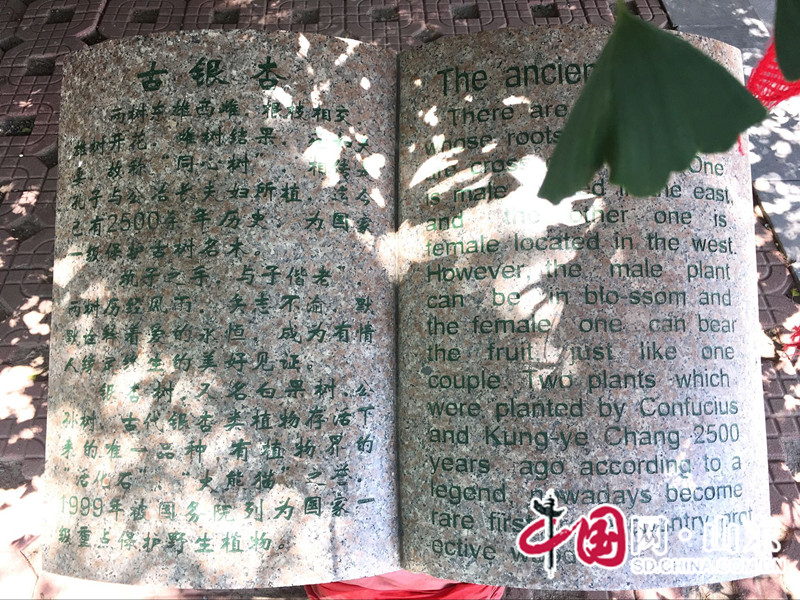 古银杏
两树东雄西雌，根枝相交
雄树开花，雌树结果，
妻，故称“同心树”。相传
孔子与公冶长夫妇所植，迄今
已有2500余年历史，为国家
一级保护古树名木。
执子之手，与子偕老”，
两树历经风雨，矢志不渝，默
默诠释着爱的永恒，成为有情
人缔定终生的美好见证。
银杏树，又名白果树、公
孙树，古代银杏类植物存活下
来的唯一品种，有植物界的
“活化石”、“大熊猫”之誉。
1999年被国务院列为国家一
级重点保护野生植物。
The
There are
whose roots
are One
is male in the east,
and the other one is
female located in the west.
However, the male plant
can be in blo-ssom and
the female one can bear
the fruit just like one
couple. Two plants which
were planted by Confucius
and Kung-ye Chang 2500
years ago according to a
legend. become
rare
ective
中国网·山东
SD.CHINA.COM.CN